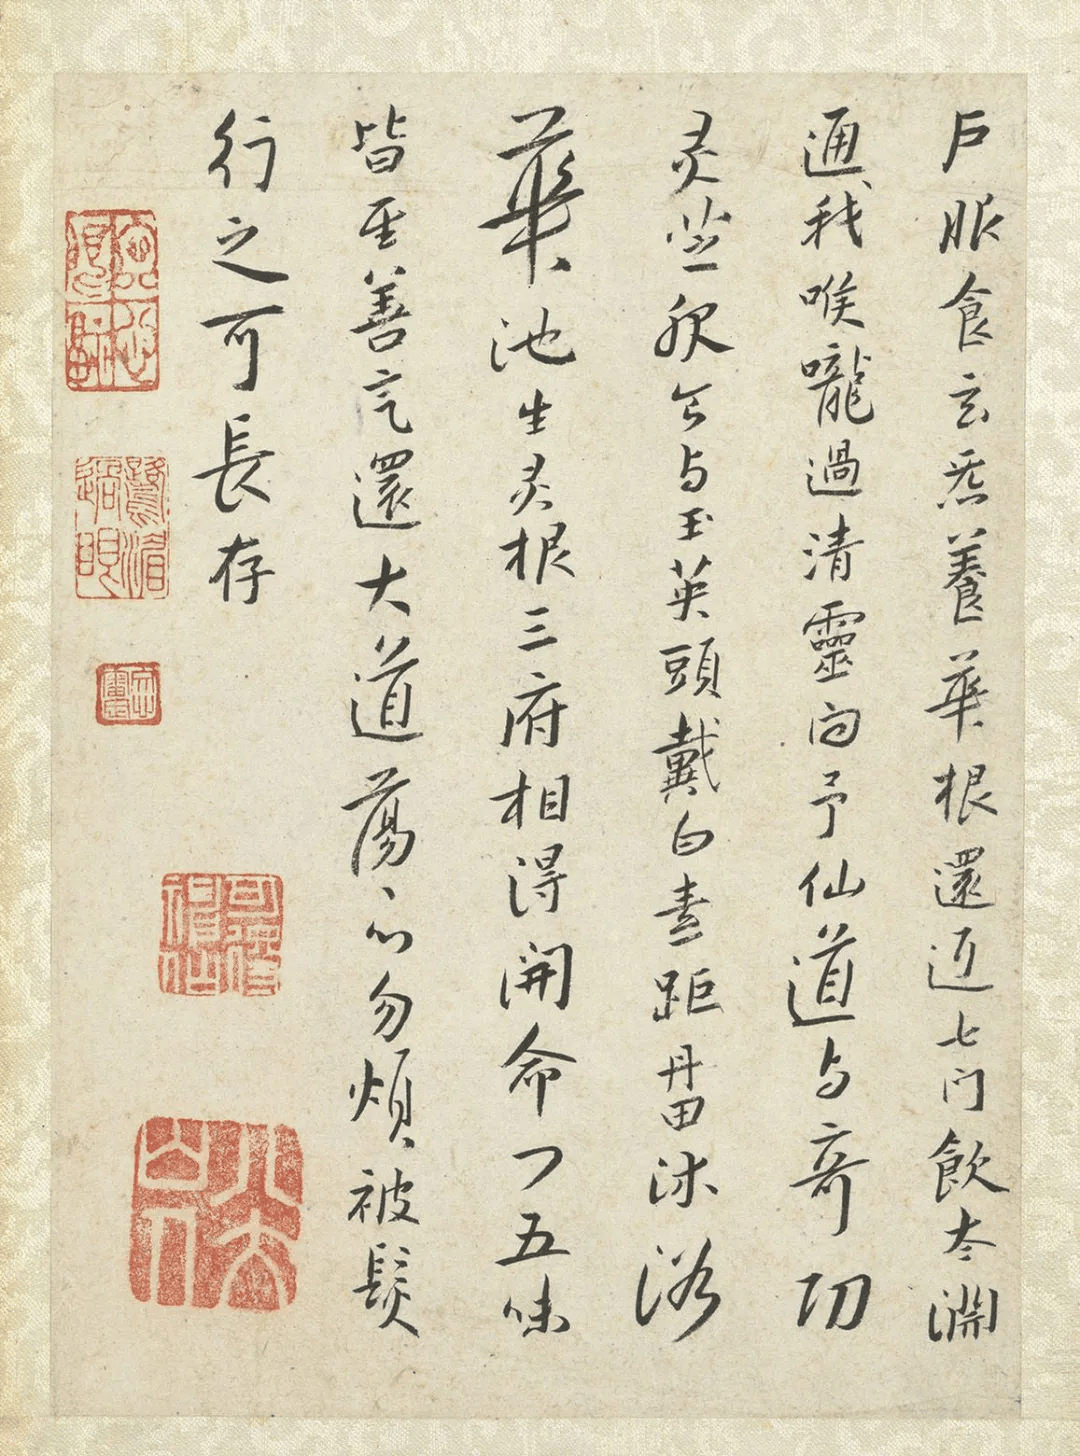 戶服食玄炁養華根還返七门飲太淵
通我喉嚨過清靈问予仙道与奇功
灵芝兮与玉英頭戴白素距丹田沐浴
華池生灵根三府相得開命门五味
皆至善气還大道蕩々心勿煩被髮
行之可長存